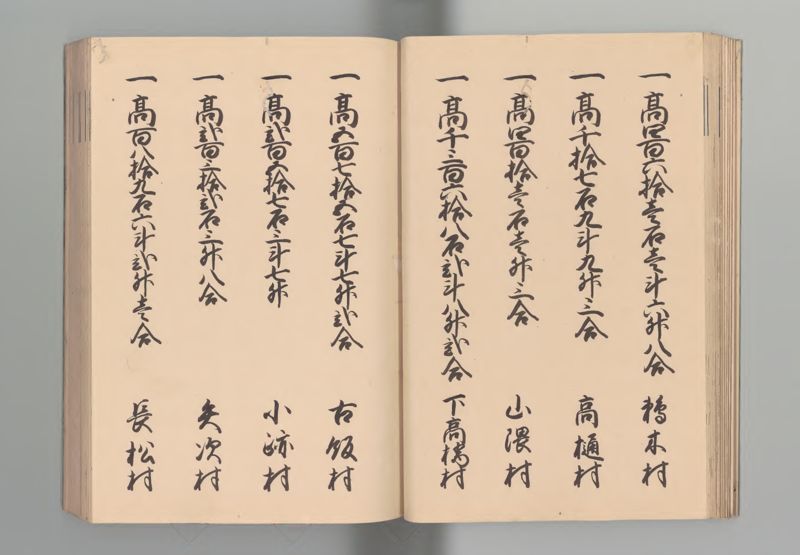 一 高四百六拾壱石壱斗六升八合 鵜木村
一 高千拾七石九斗九升三合 高樋村
一 高四百拾壱石壱升三合 山隈村
一 高千三百六拾八石弐斗八升弐合 下高橋村
一 高五百七拾五石七斗七升弐合 古飯村
一 高弐百五拾七石三斗七升 小跡村
一 高弐百三拾弐石三升八合 矢次村
一 高百八拾九石六斗弐升壱合 長松村